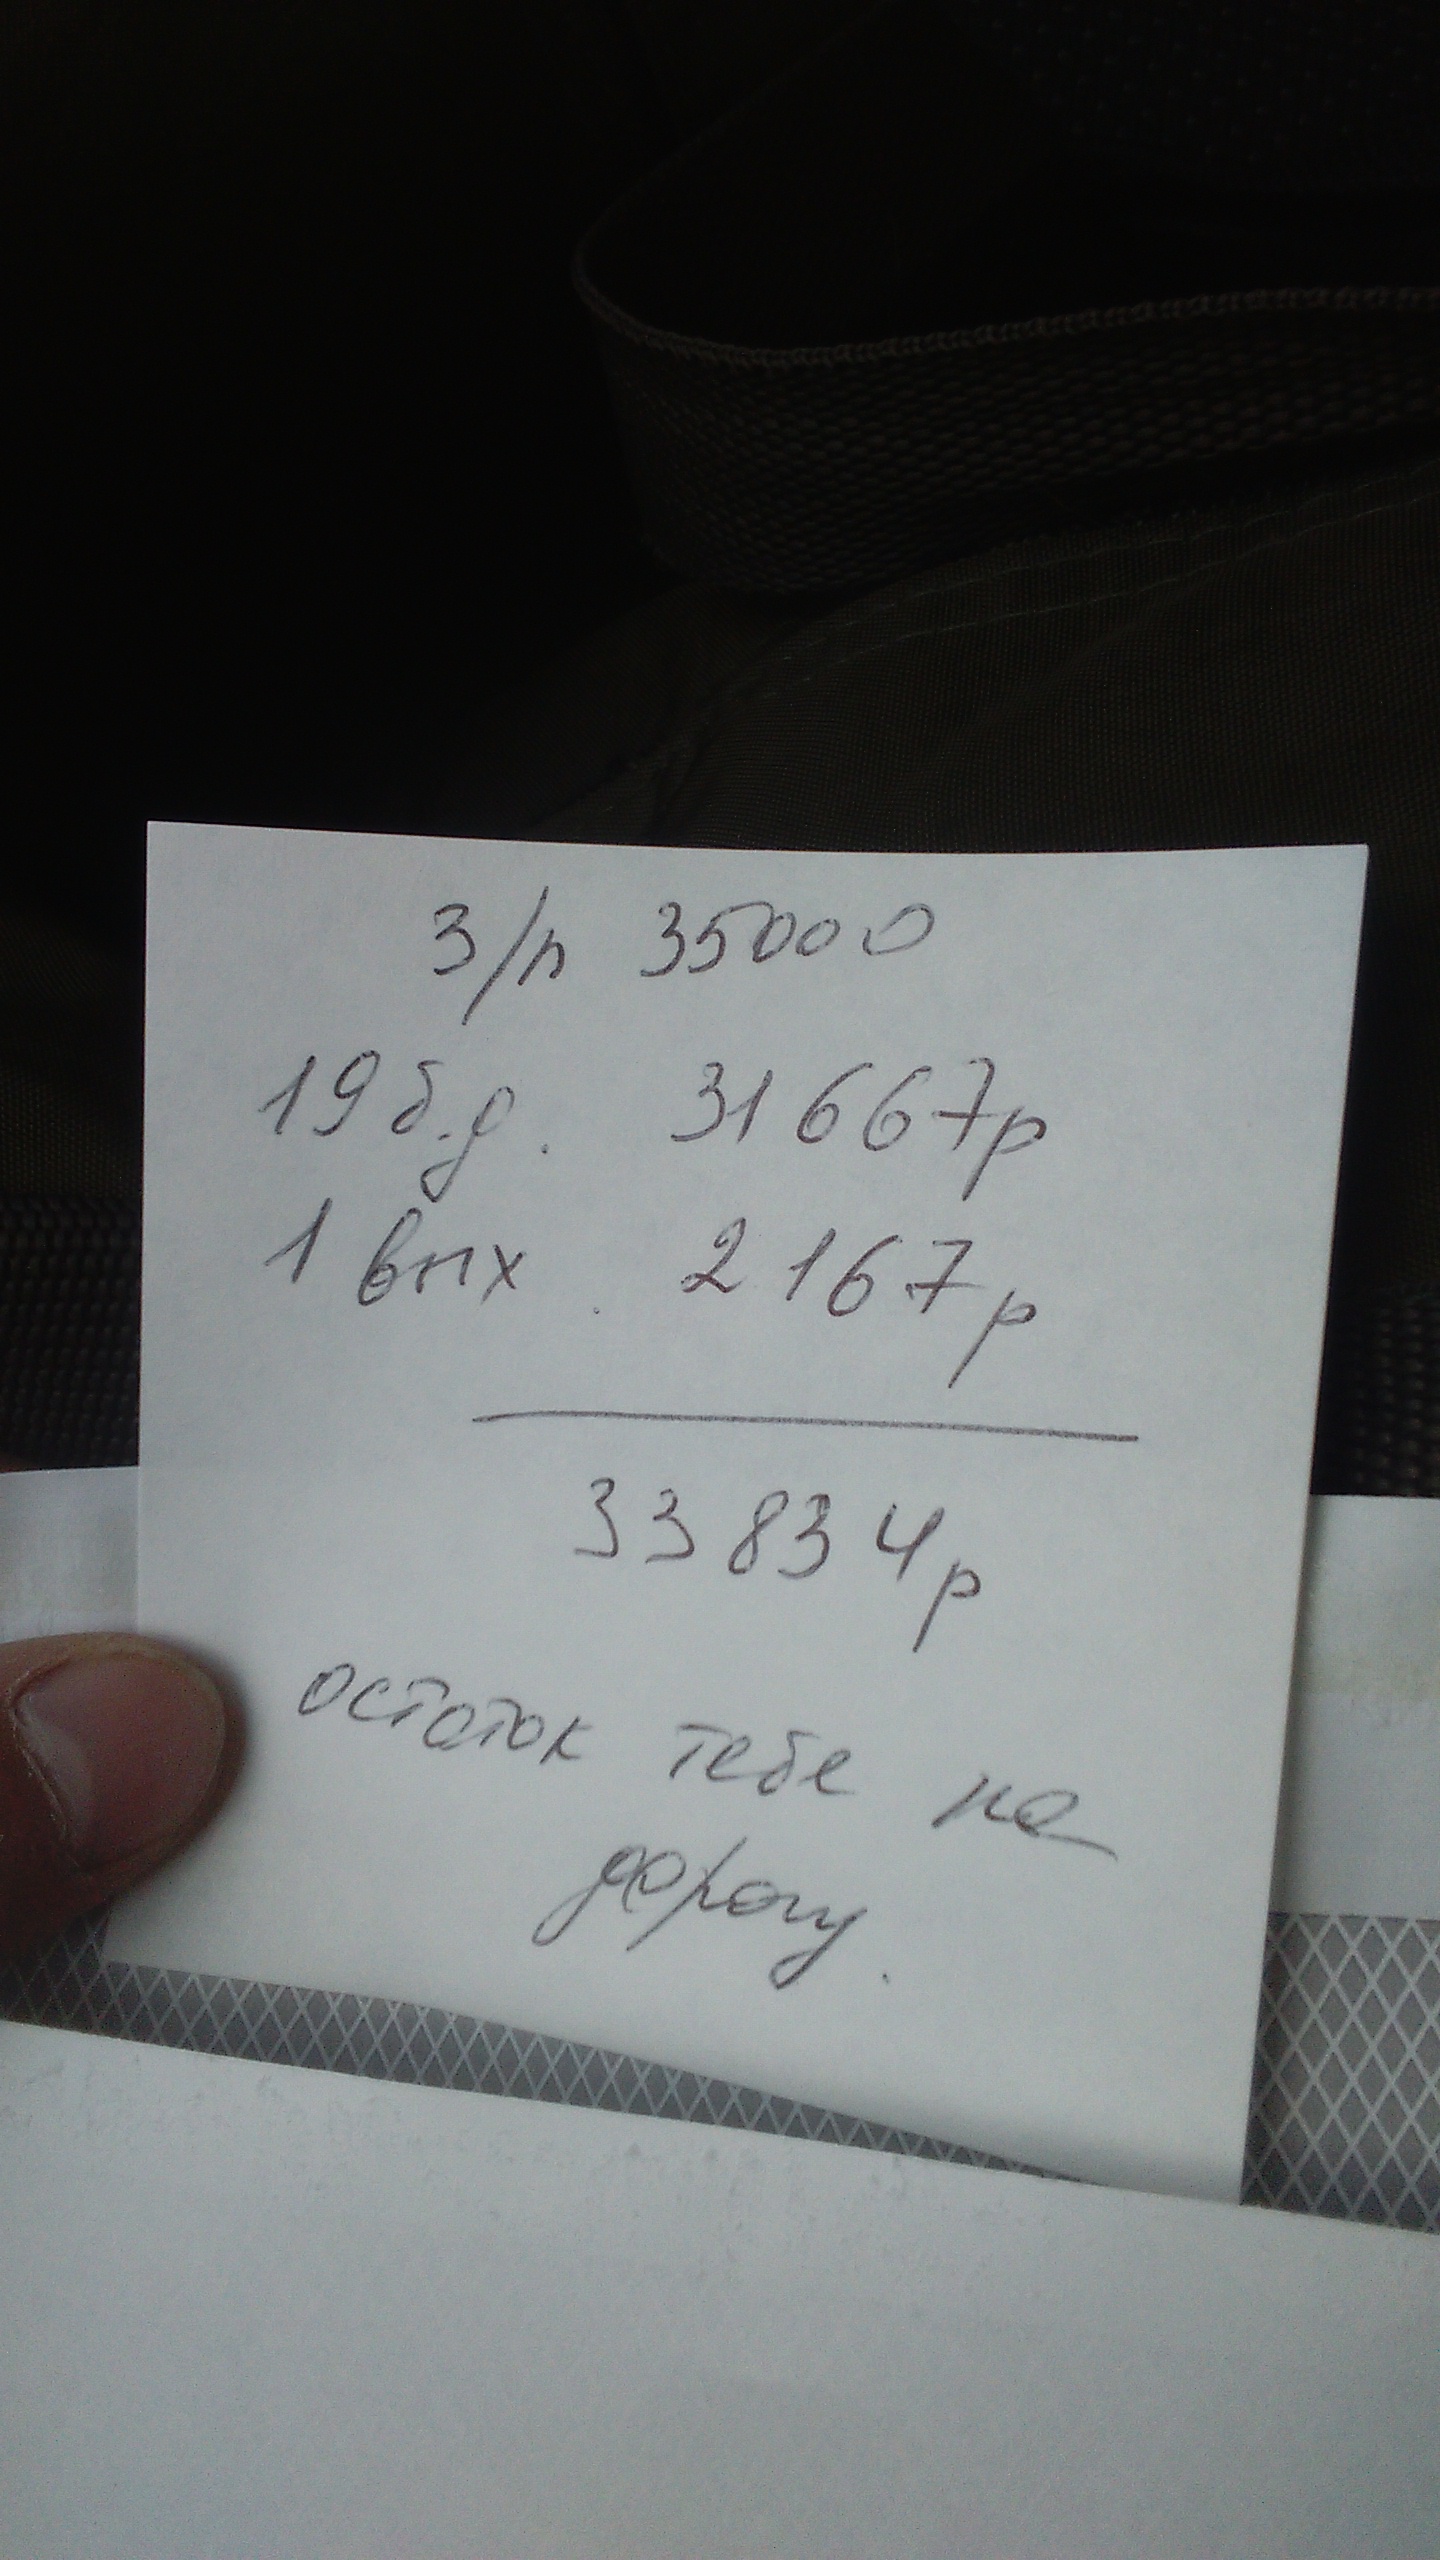 з/п 35000
19 б.д. 31667р
1 вых. 2167р
33834р
остаток тебе на
дорогу.